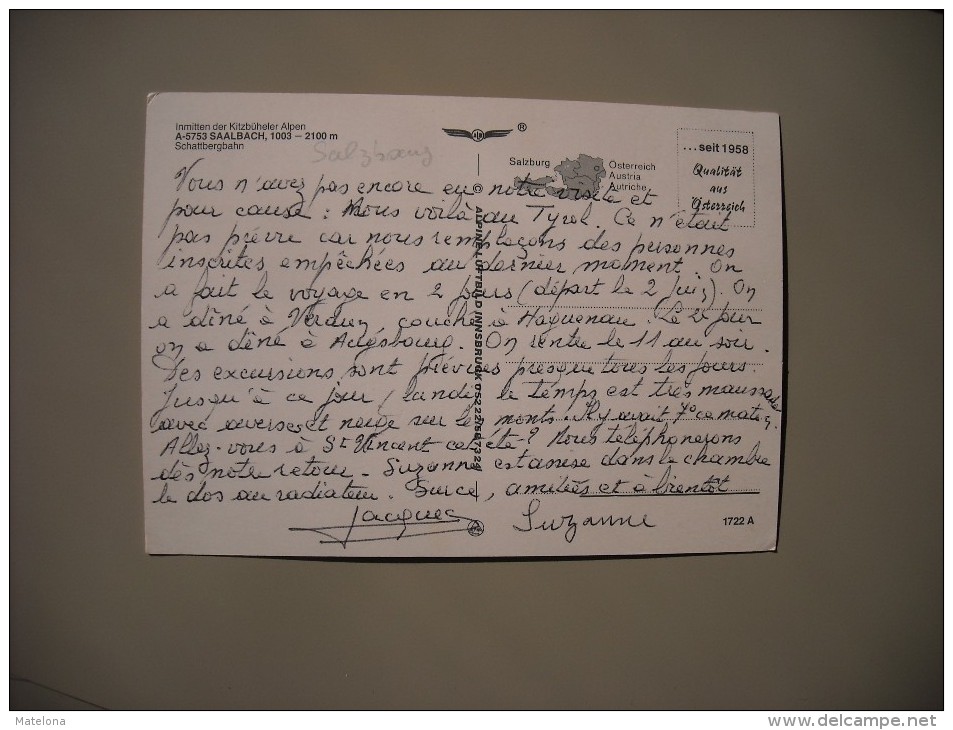 Inmitten der Kitzbüheler Alpen
A-5753 SAALBACH, 1003 – 2100 m
Schattbergbahn
Salzburg
®
Salzburg
Österreich
Austria
Autriche
...seit 1958
Qualität
aus
Österreich
© ALPINE LUFTBILD INNSBRUCK 05222/5673 24
Vous n'avez pas encore eu notre visite et
pour cause : Nous voilà au Tyrol. Ce n'était
pas prévu car nous remplaçons des personnes
inscrites empêchées au dernier moment. On
a fait le voyage en 2 jours (départ le 2 Juin). On
a dîné à Verdun, couché à Haguenau. Le 2e jour
on a dîné à Augsbourg. On rentre le 11 au soir.
Des excursions sont prévues presque tous les jours.
Jusqu'à ce jour (lundi) le temps est très maussade
avec averses et neige sur les monts. Il y avait 7° ce matin.
Allez-vous à St Vincent cet été ? Nous téléphonerons
dès notre retour. Suzanne est assise dans la chambre
le dos au radiateur. Sur ce, amitiés et à bientôt
Jacques
Suzanne
1722 A
Matelona
www.delcampe.net